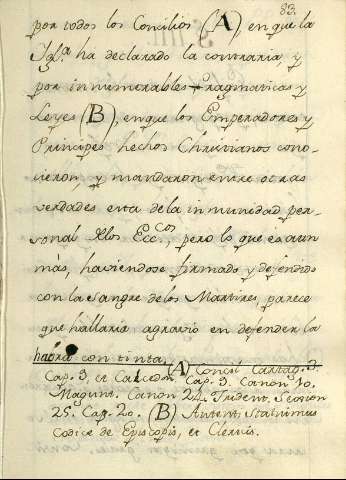 83.
por todos los Concilios (A) en que la
Igl.ª ha declarado la contraria y
por innumerables Pragmaticas y
Leyes (B), en que los Emperadores y
Principes hechos Christianos cono-
vieron, y mandaron entre otras
verdades esta de la inmunidad per-
sonal de los Ecc.cos, pero lo que es aun
más, haviendose firmado y defendido
con la sangre de los Martires, parece
que hallaria agravio en defender la
haora con tinta
(A) Concil Cartag. 3.
Cap. 9, et Calcedon. Cap. 9. Canon 10.
Magunt. Canon 24. Trident. Session
25. Cap. 20. (B) Autent. Statuimus
Codice de Episcopis, et Clericis.